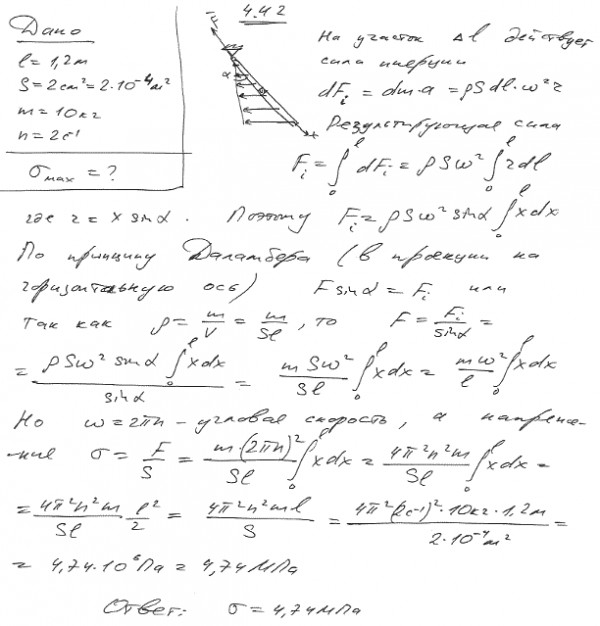 4.42
Дано
l = 1,2м
S = 2см² = 2·10⁻⁴м²
m = 10кг
n = 2с⁻¹
σmax = ?
F
α
x
На участок Δl действует
сила инерции
dFᵢ = dm·a = ρSdl·ω²r
Результирующая сила
Fᵢ = ∫₀ˡ dFᵢ = ρSω² ∫₀ˡ rdl
где r = x sinα. Поэтому Fᵢ = ρSω² sinα ∫₀ˡ xdx
По принципу Даламбера (в проекции на
горизонтальную ось) F sinα = Fᵢ или
так как ρ = m/V = m/Sl, то F = Fᵢ/sinα =
= ρSω² sinα ∫₀ˡ xdx / sinα = mSω²/Sl ∫₀ˡ xdx = mω²/l ∫₀ˡ xdx
Но ω = 2πn - угловая скорость, а напряже-
-ние σ = F/S = m·(2πn)²/Sl ∫₀ˡ xdx = 4π²n²m/Sl ∫₀ˡ xdx =
= 4π²n²m/Sl · l²/2 = 4π²n²ml/S = 4π²(2с⁻¹)²·10кг·1,2м / 2·10⁻⁴м² =
= 4,74·10⁶Па = 4,74МПа
Ответ: σ = 4,74МПа